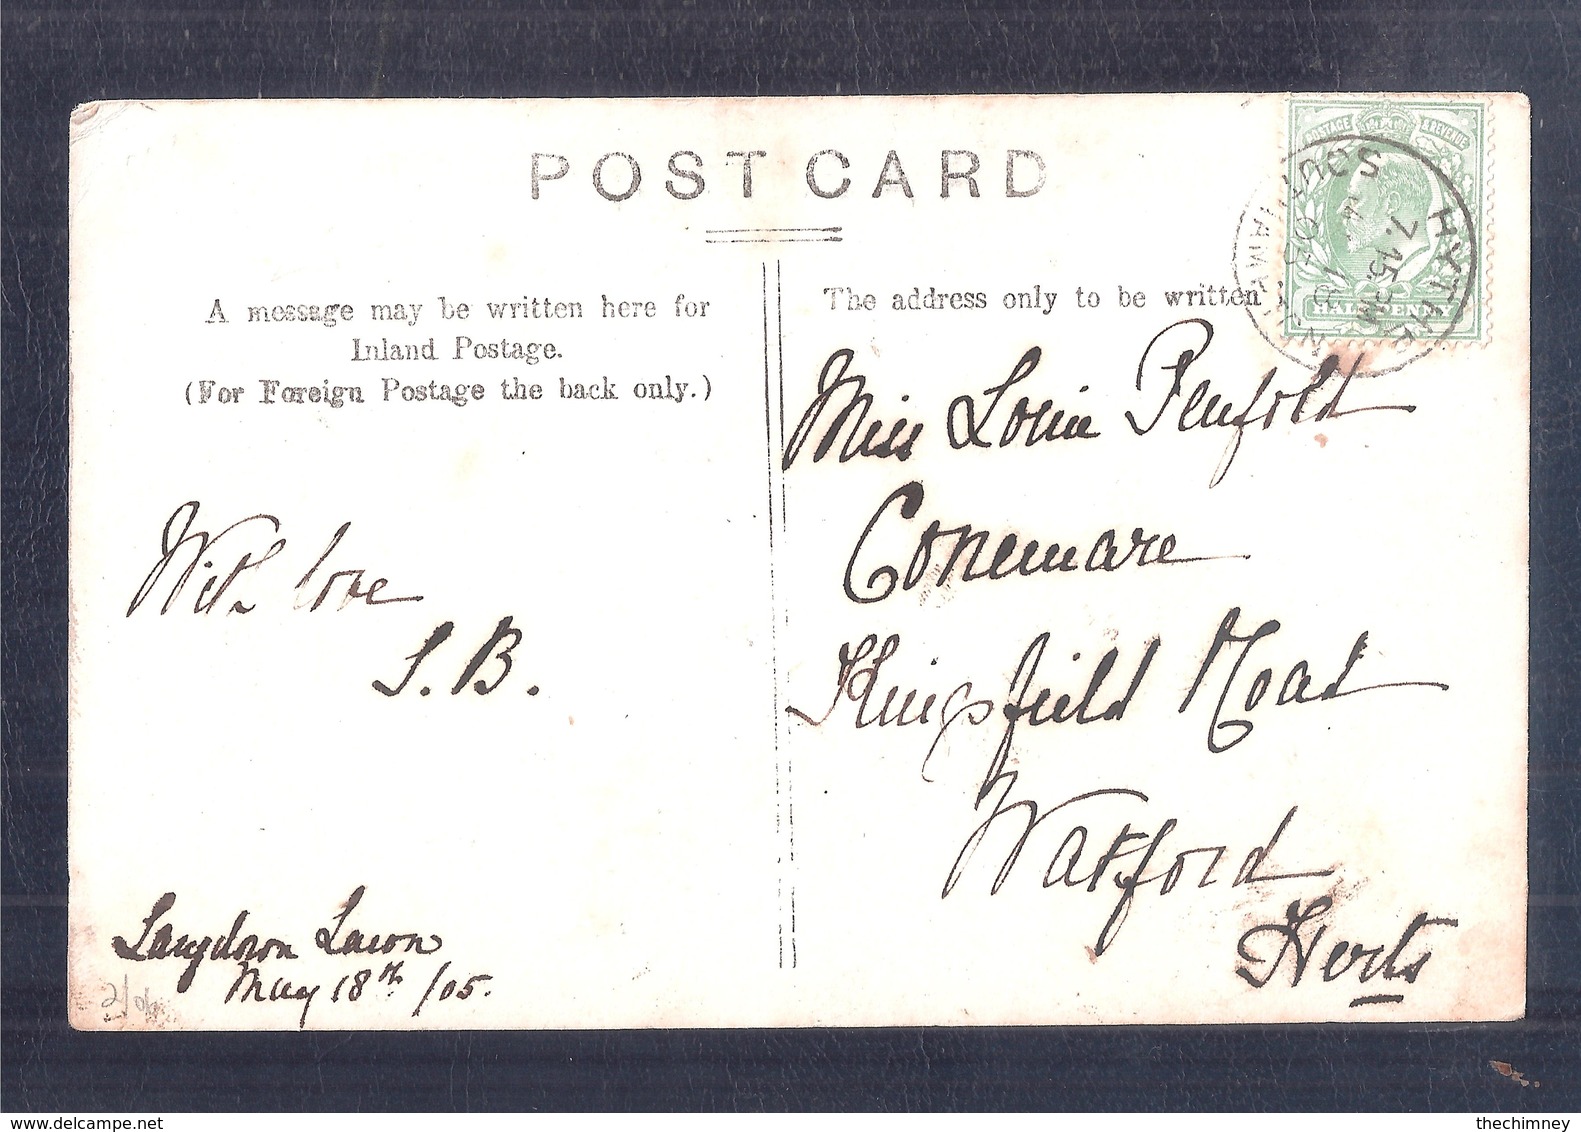 POST CARD
A message may be written here for
Inland Postage.
(For Foreign Postage the back only.)
The address only to be written
POSTAGE & REVENUE
HALF PENNY
HYTHE
SOUTHAMPTON
7.15 PM
18
05
Miss Louie Penfold
Conemare
Kingsfield Road
Watford
Herts
With love
S.B.
Langdown Lawn
May 18th /05.
thechimney